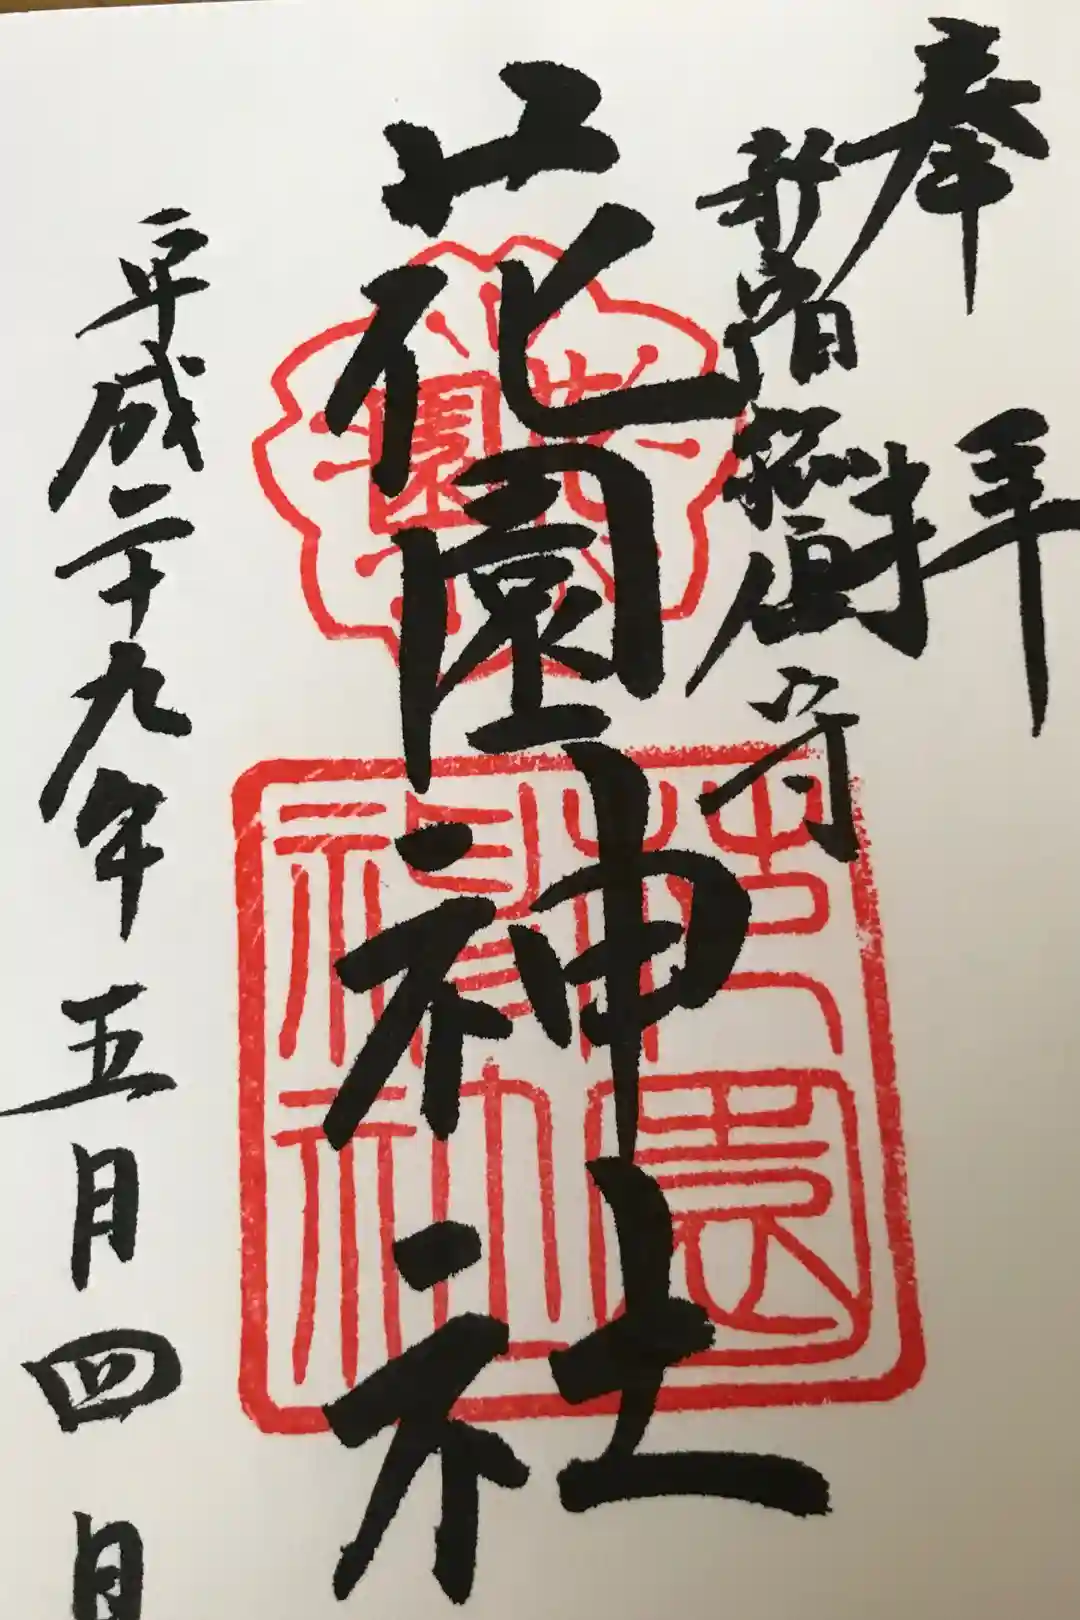 奉拝
新宿総鎮守
花園神社
花園
花園神社
平成二十九年五月四日